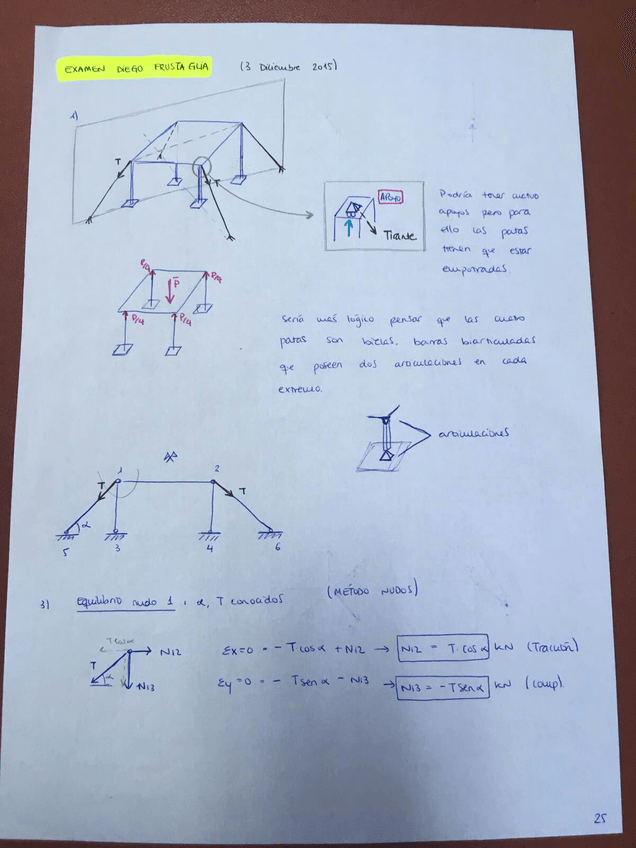 EXAMEN DIEGO FRUSTAGLIA (3 Diciembre 2015)
1)
T
T
APOYO
Tirante
Podría tener cuatro
apoyos pero para
ello las patas
tienen que estar
empotradas
P/4
P/4
P
P/4
P/4
Sería más lógico pensar que las cuatro
patas son bielas, barras biarticuladas
que poseen dos articulaciones en cada
extremo.
articulaciones
1
2
T
T
α
5
3
4
6
3) equilibrio nudo 1, α, T conocidos (MÉTODO NUDOS)
T cos α
T
α
N12
N13
Σx=0 = -T cos α + N12 → N12 = T·cos α kN (Tracción)
Σy=0 = -T sen α - N13 → N13 = -T sen α kN (comp).
25